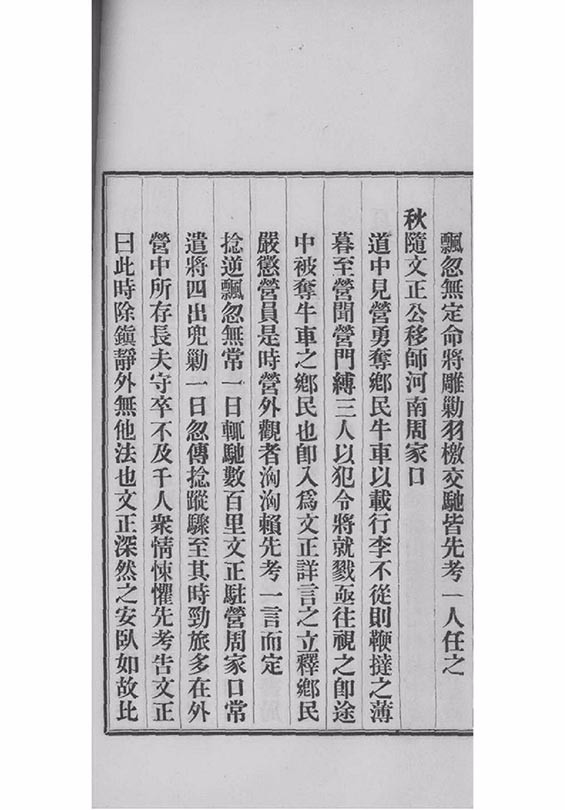 飄忽無定命將雕勦羽檄交馳皆先考一人任之
秋隨文正公移師河南周家口
道中見營勇奪鄉民牛車以載行李不從則鞭撻之薄
暮至營聞營門縛三人以犯令將就戮亟往視之卽途
中被奪牛車之鄉民也卽入爲文正詳言之立釋鄉民
嚴懲營員是時營外觀者洶洶賴先考一言而定
捻逆飄忽無常一日輒馳數百里文正駐營周家口常
遣將四出兜勦一日忽傳捻蹤驟至其時勁旅多在外
營中所存長夫守卒不及千人衆情悚懼先考告文正
曰此時除鎭靜外無他法也文正深然之安臥如故比